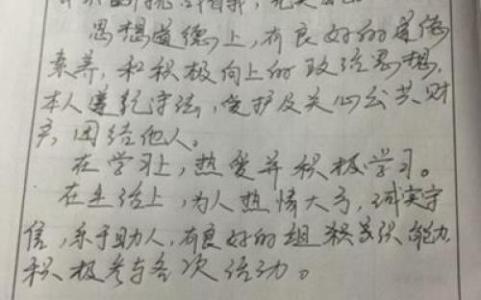 思想道德上,有良好的道德
素养,和积极向上的政治思想,
本人遵纪守法,爱护及关心公共财
产,团结他人。
在学习上,热爱并积极学习。
在生活上,为人热情大方,诚实守
信,乐于助人,有良好的组积织能力
积极参与各次活动。